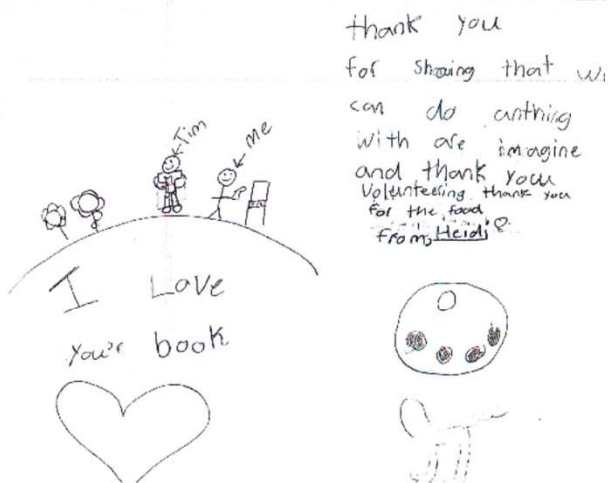 Tim
me
I Love
you're book
thank you
for showing that we
can do anthing
with are imagine
and thank you
Volunteering thank you
for the food
From, Heidi